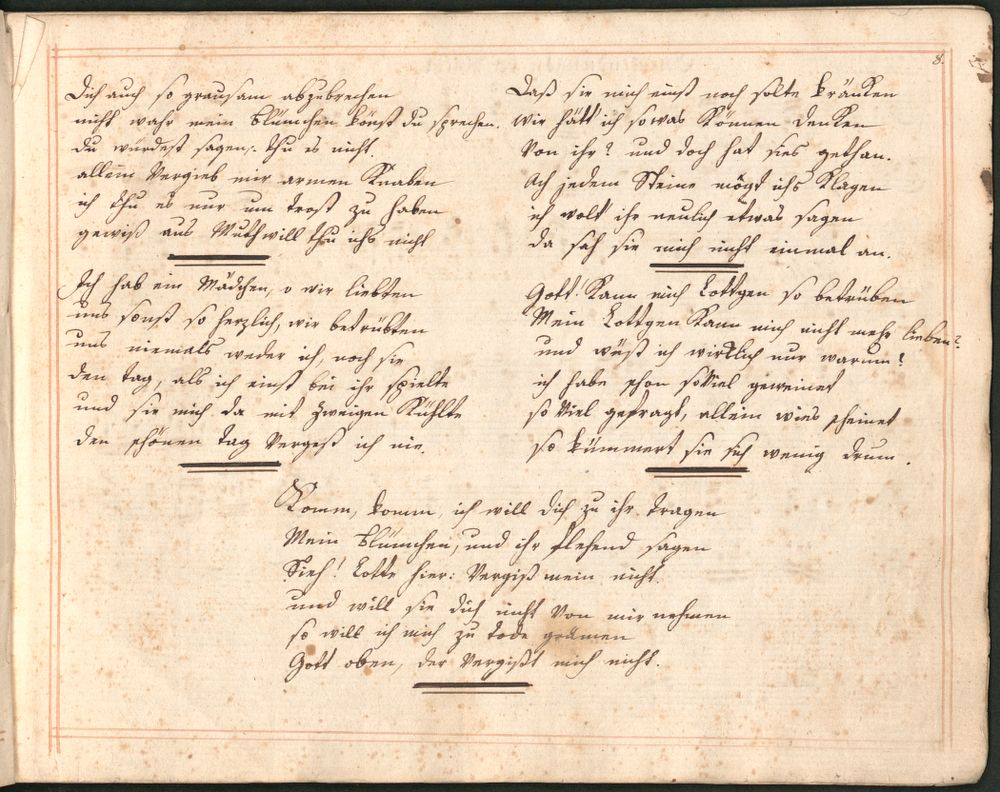 8.
Dich auch so grausam abzubrechen
nicht wahr mein Blümchen könst du sprechen.
du würdest sagen: thu es nicht.
allein Vergieb mir armen Knaben
ich thu es nur um trost zu haben
gewiß aus Muthwill thu ichs nicht
Ich hab ein Mädchen, o wir liebten
uns sonst so herzlich, wir betrübten
uns niemals weder ich, noch sie
den tag, als ich einst bei ihr spielte
und sie mich da mit Zweigen Kühlte
den schönen tag Vergeß ich nie.
Daß sie mich einst noch solte kränken
Wie hätt ich so was Können denken
Von ihr? und doch hat sies gethan.
Ach jedem Steine mögt ichs Klagen
ich wolt ihr neulich etwas sagen
da sah sie mich nicht einmal an.
Gott! Kann mich Lottgen so betrüben
Mein Lottgen Kann mich nicht mehr lieben?
und wüst ich wircklich nur warum?
ich habe schon so Viel geweinet
so Viel gefragt, allein wies scheinet
so kümmert sie sich wenig drum.
Komm, komm, ich will dich zu ihr tragen
Mein Blümchen, und ihr flehend sagen
Sieh! Lotte hier: Vergiß mein nicht.
und will sie dich nicht Von mir nehmen
so will ich mich zu tode grämen
Gott oben, der Vergißt mich nicht.